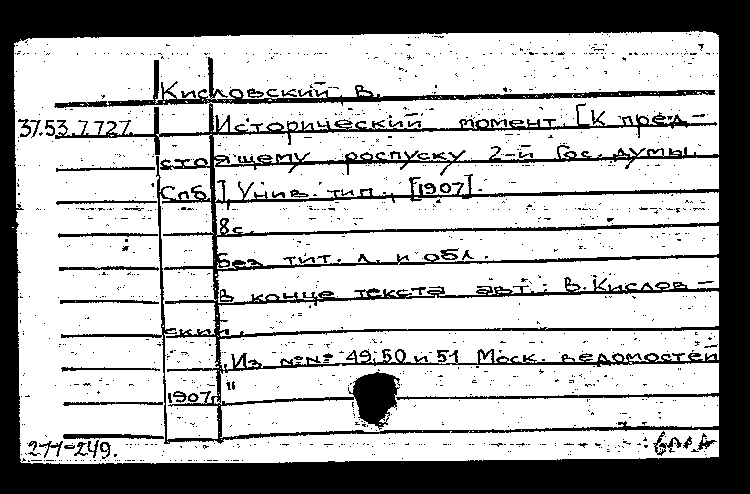 Кисловский, В.
37.53.7.727. Исторический момент. [К пред-
стоящему роспуску 2-й Гос. думы.
Спб.], Унив. тип., [1907].
8с.
Без тит. л. и обл.
В конце текста авт.: В. Кислов-
ский.
"Из №№ 49, 50 и 51 Моск. ведомостей
1907г."
277-249.